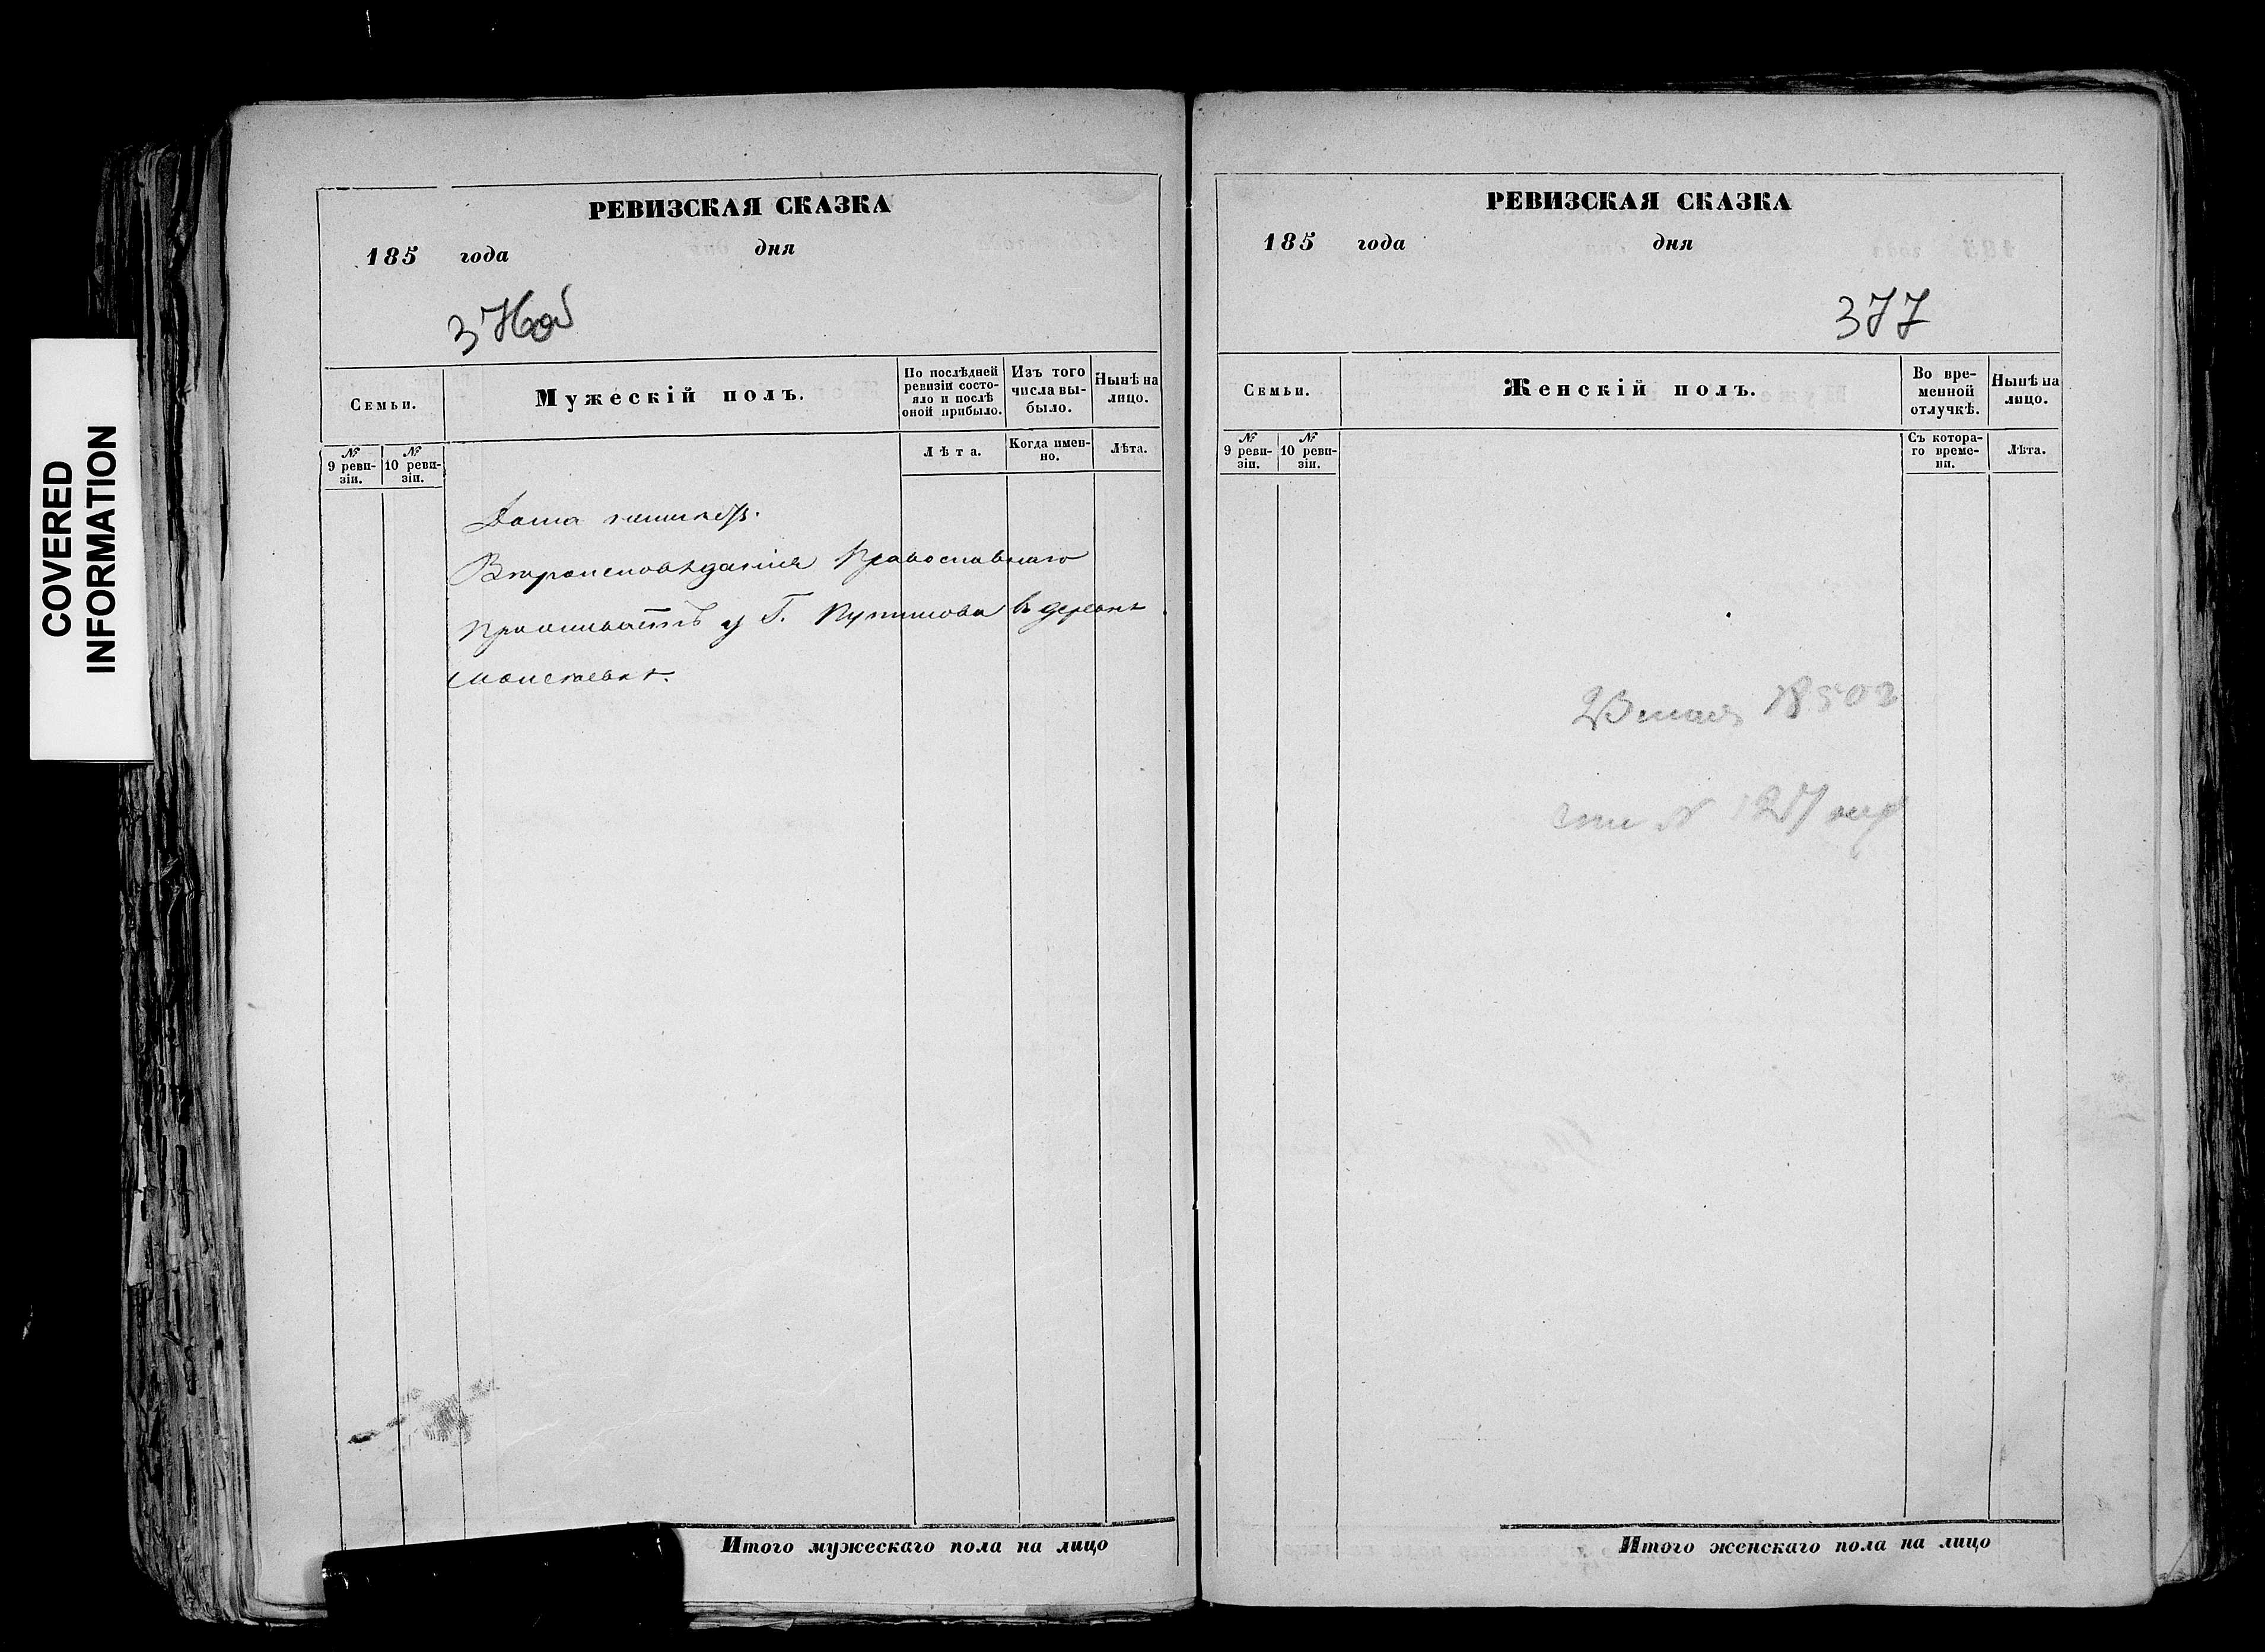 COVERED
INFORMATION
РЕВИЗСКАЯ СКАЗКА
185 года дня
376об
Семьи.
Мужескій полъ.
По послѣдней
ревизіи состо-
яло и послѣ
оной прибыло.
Изъ того
числа вы-
было.
Нынѣ на
лицо.
№
9 реви-
зіи.
№
10 реви-
зіи.
Лѣта.
Когда имен-
но.
Лѣта.
Вѣроисповѣданія Православнаго
проживаетъ у Г. въ деревнѣ
Итого мужескаго пола на лицо
РЕВИЗСКАЯ СКАЗКА
185 года дня
377
Семьи.
Женскій полъ.
Во вре-
менной
отлучкѣ.
Нынѣ на
лицо.
№
9 реви-
зіи.
№
10 реви-
зіи.
Съ котора-
го време-
ни.
Лѣта.
Итого женскаго пола на лицо